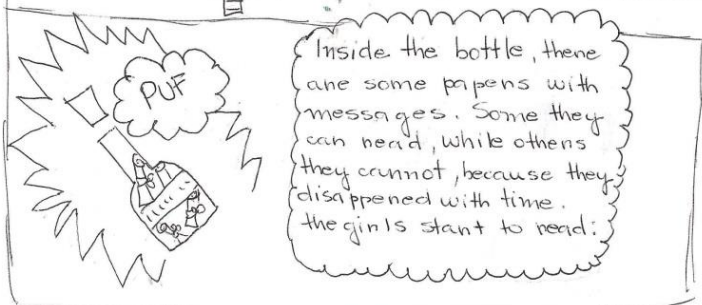 PUF
Inside the bottle, there
are some papers with
messages. Some they
can read, while others
they cannot, because they
disappened with time.
the girls start to read: